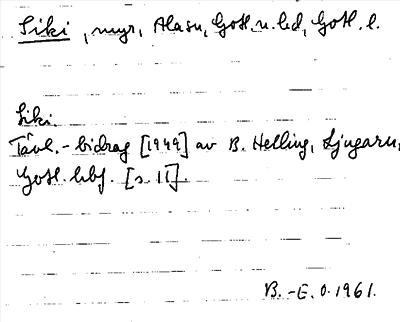 Siki, myr, Alasn, Gotl. n. hd, Gotl. l.
Siki.
Tävl.-bidrag [1949] av B. Helling, Ljugarn,
Gotl. hbf. [s. 11].
B.-E. O. 1961.